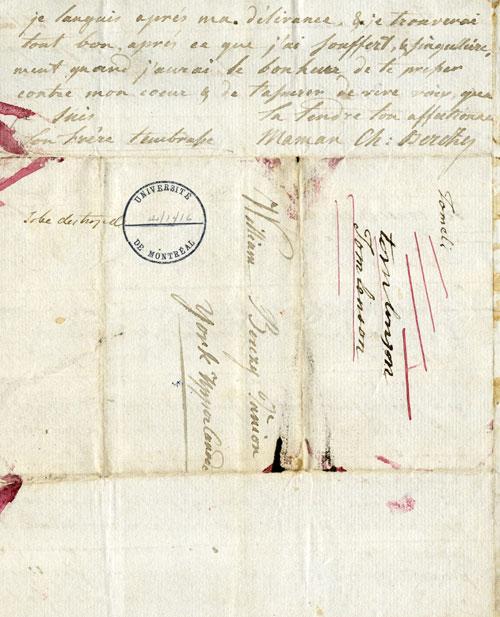 je languis aprés ma délivrance, & je trouverai
tout bon, aprés ce que j'ai souffert, & singuliére,
ment quand j'aurai le bonheur de te presser
contre mon coeur & de t'assurer de vive voix, que
Suis la tendre ton affectionné
ton Frére t'embrasse Maman Ch: Berczy
To be destroyed
UNIVERSITÉ
DE MONTRÉAL
William Berczy
York Upper Canada
Tomlinson